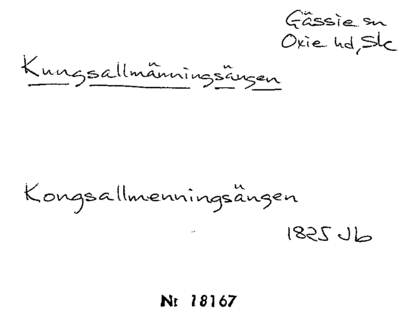 Gässie sn
Oxie hd, Sk
Kungsallmänningsängen
Kongsallmenningsängen
1825 Jb
Nr 18167